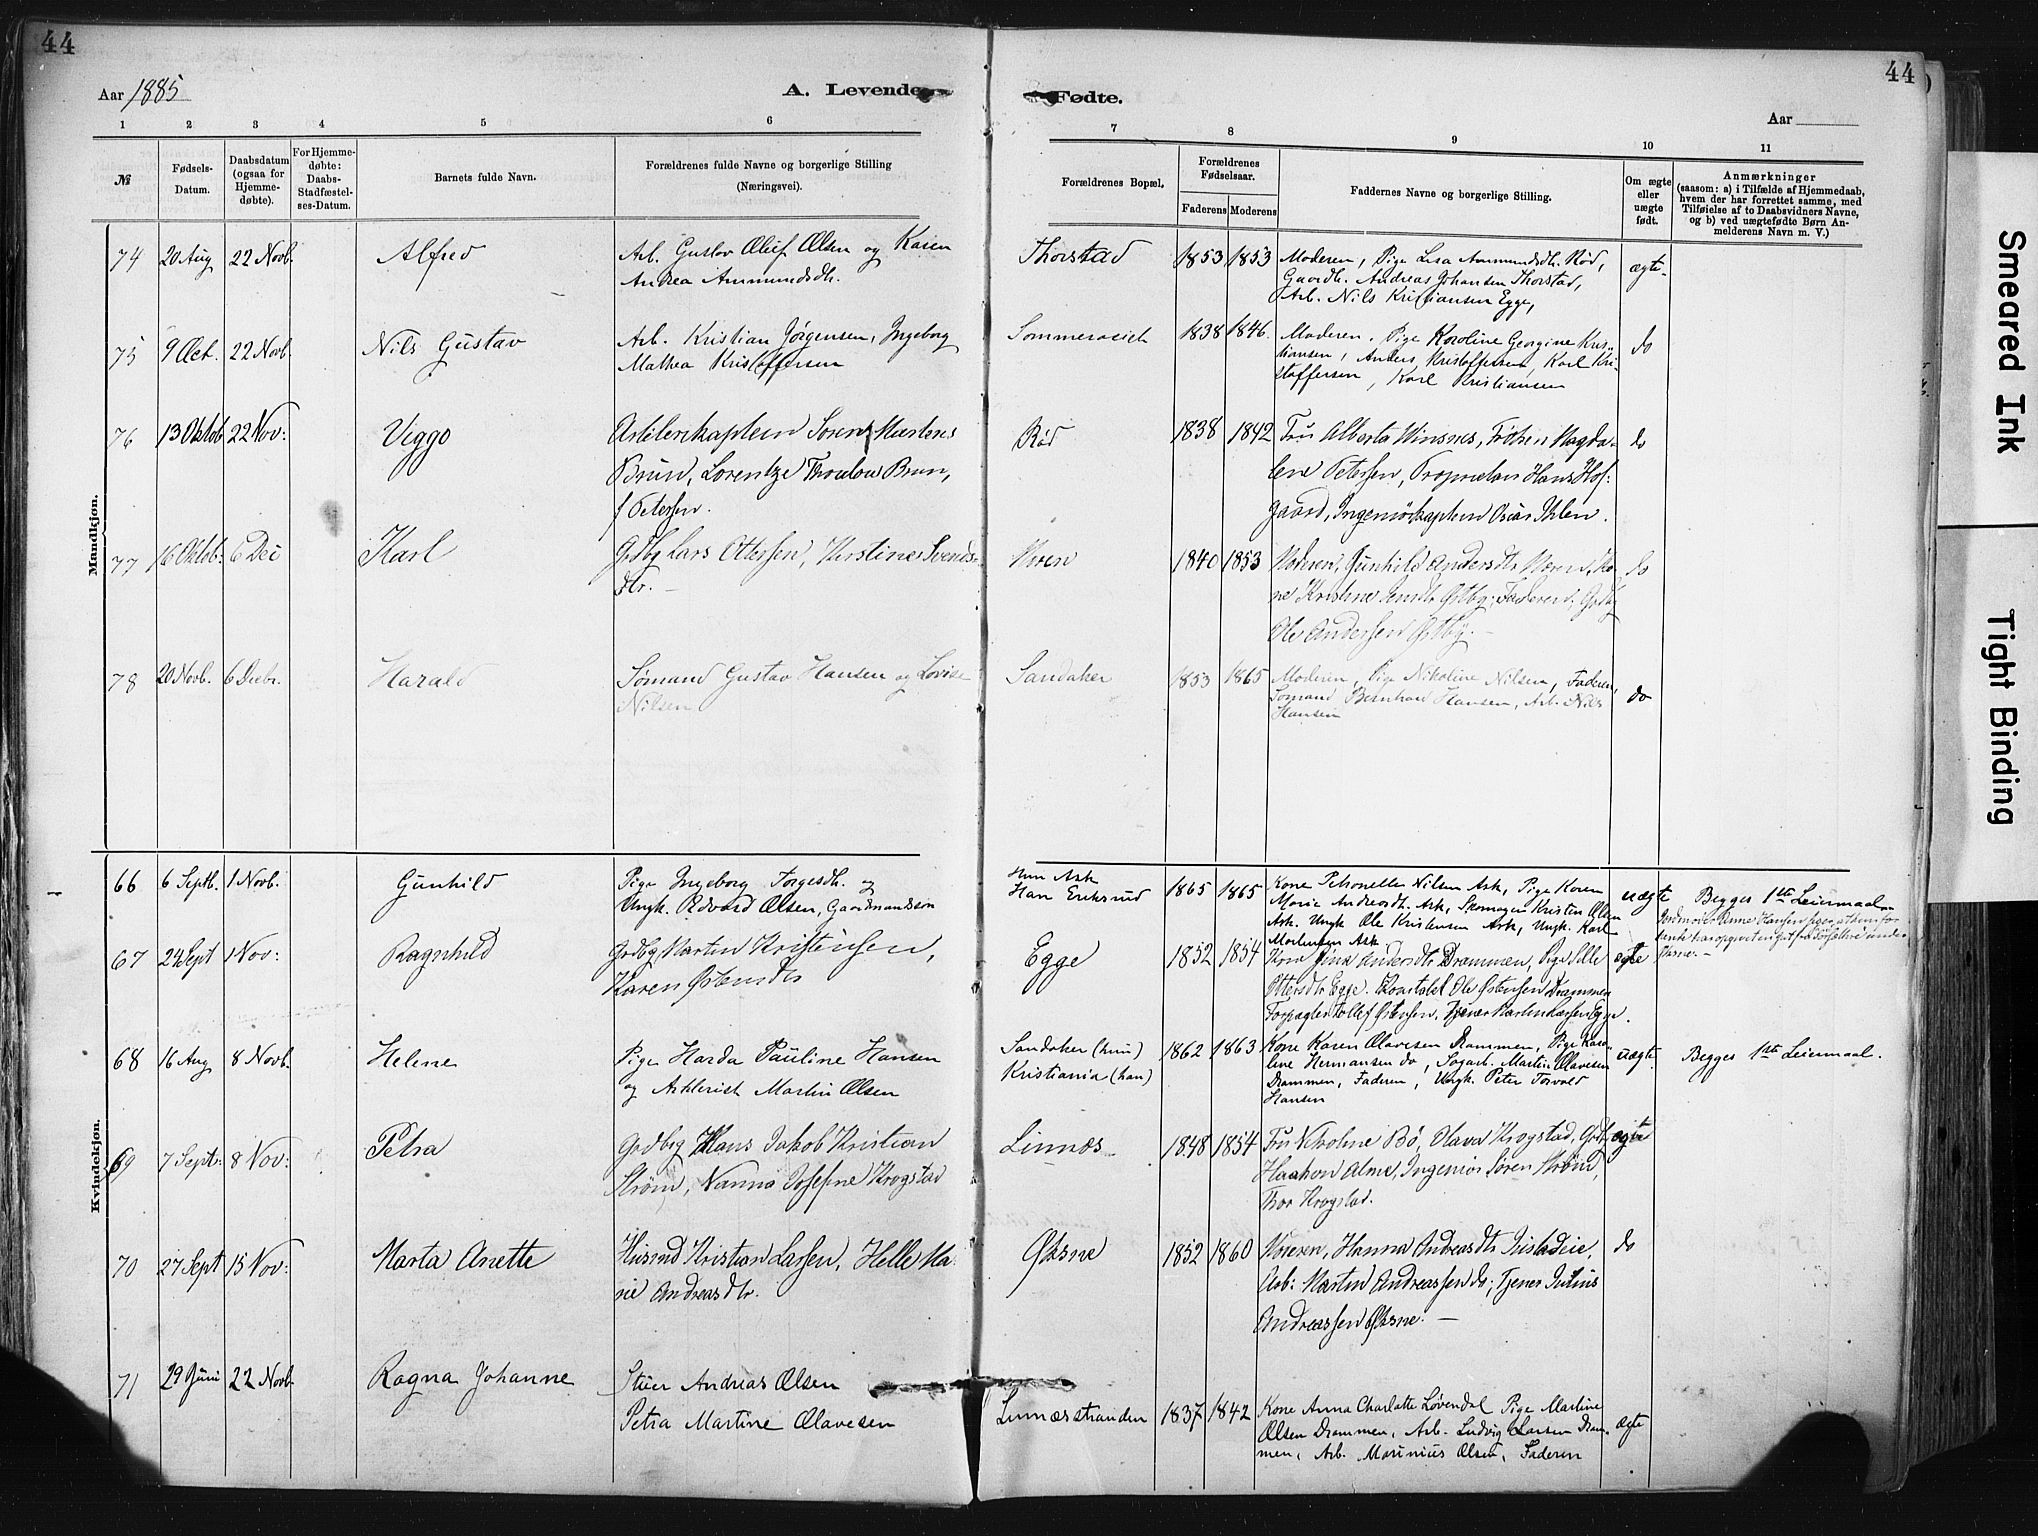 44
44
Aar 1885
A. Levende
Fødte.
Aar
1
2
3
4
5
6
7
8
9
10
11
№
Fødsels-
Datum.
Daabsdatum
(ogsaa for
Hjemme-
døbte).
For Hjemme-
døbte:
Daabs-
Stadfæstel-
ses-Datum.
Barnets fulde Navn.
Forældrenes fulde Navne og borgerlige Stilling
(Næringsvei).
Forældrenes Bopæl.
Forældrenes
Fødselsaar.
Faderens
Moderens
Faddernes Navne og borgerlige Stilling.
Om ægte
eller
uægte
født.
Anmærkninger
(saasom: a) i Tilfælde af Hjemmedaab,
hvem der har forrettet samme, med
Tilføielse af to Daabsvidners Navne,
og b) ved uægtefødte Børn An-
melderens Navn m. V.)
Mandkjøn.
74 20 Aug 22 Novb. Alfred
Arb. Gustav Oluf Olsen og Karen
Andrea Ammundsdtr.
Thorstad 1853 1853
Moderen, Pige Lisa Ammundsdtr. Rød,
Gaardb. Andreas Johansen Thorstad,
Arb. Nils Kristiansen Egge,
ægte.
75 9 Oct. 22 Novb. Nils Gustav
Arb. Kristian Jørgensen, Ingeborg
Mathea Kristoffersen
1838 1846.
Moderen, Pige Karoline Georgine Kris-
tiansen, Anders Kristoffersen, Karl Kri-
stoffersen, Karl Kristiansen
do
76 13 Oktob 22 Nov: Viggo
Brun, Lorentze Thaulow Brun,
f Petersen.
Rød 1838 1842
Fru Alberta Winsnes, Frøken Magda-
lene Petersen, Proprietær Hans Hof-
gaard, Ingeniørkaptein Oscar Ihlen.
do
77 16 Oktob. 6 Dec Karl
Gdbg Lars Ottersen, Kirstine Svends-
dtr.
1840 1853
Moderen, Gunhild Andersdtr
Kristine Østby, Faderen, Gbdg
Ole Andersen Østby.
do
78 20 Novb. 6 Decbr. Harald
Sømand Gustav Hansen og Lovise
Nilsen
Sandaker 1853 1865
Moderen, Pige Nikoline Nilsen, Faderen,
Sømand Bernhard Hansen, Arb. Nils
Hansen
do
Kvindekjøn.
66 6 Septb. 1 Novb. Gunhild
Pige Ingeborg Torgesdtr. og
Ungk. Edvard Olsen, Gaardmandssøn
Hun Ask
Han Eriksrud
1865 1865
Kone Petronelle Nilsen Ask, Pige Karen
Marie Andreasdtr. Ask, Skomager Kristen Olsen
Ask. Ungk. Ole Kristensen Ask, Ungk. Karl
Mortensen Ask
uægte
Begges 1ste Leiermaal.
67 24 Sept 1 Nov: Ragnhild
Gbdbg Martin Kristensen,
Karen Østensdtr
Egge 1852 1854
Andersdtr Drammen, Pige Sille
Ottersdtr Egge. Ole Østensen Drammen
Forpagter Tollef Østensen, Tjener Martin Larsen Egge.
ægte
68 16 Aug 8 Novb. Helene
Pige Harda Pauline Hansen
og Artilerist Martin Olsen
Sandaker (hun)
Kristiania (han)
1862 1863
Kone Karen Olavesen Drammen, Pige Karo-
line Hermansen do, Sagarb. Martin Olavesen
Drammen, Faderen, Ungk. Peter Torvald
Hansen
uægte.
Begges 1ste Leiermaal.
69 7 Sept: 8 Nov: Petra
Gbdbg Hans Jakob Kristian
Strøm, Nanna Josefine Krogstad
Linnæs 1848 1854
Fru Nikoline Bø, Olava Krogstad, Gbd.
Haakon Alme, Ingeniør Søren Strøm,
Thor Krogstad.
ægte
70 27 Sept 15 Nov: Marta Anette
Husmd Kristian Larsen, Helle Ma-
rie Andreasdtr.
Øksne 1852 1860
Moderen, Hanna Andreasdtr
Arb: Martin Andreassen do; Tjener Julius
Andreassen Øksne. —
do
71 29 Juni 22 Novb. Ragna Johanne
Stuer Andreas Olsen
Petra Martine Olavesen
Linnæsstranden 1837 1842
Kone Anna Charlotte Løvendal Pige Martine
Olsen Drammen, Arb. Ludvig Larsen Dram-
men, Arb. Marinius Olsen, Faderen
ægte
Smeared Ink
Tight Binding